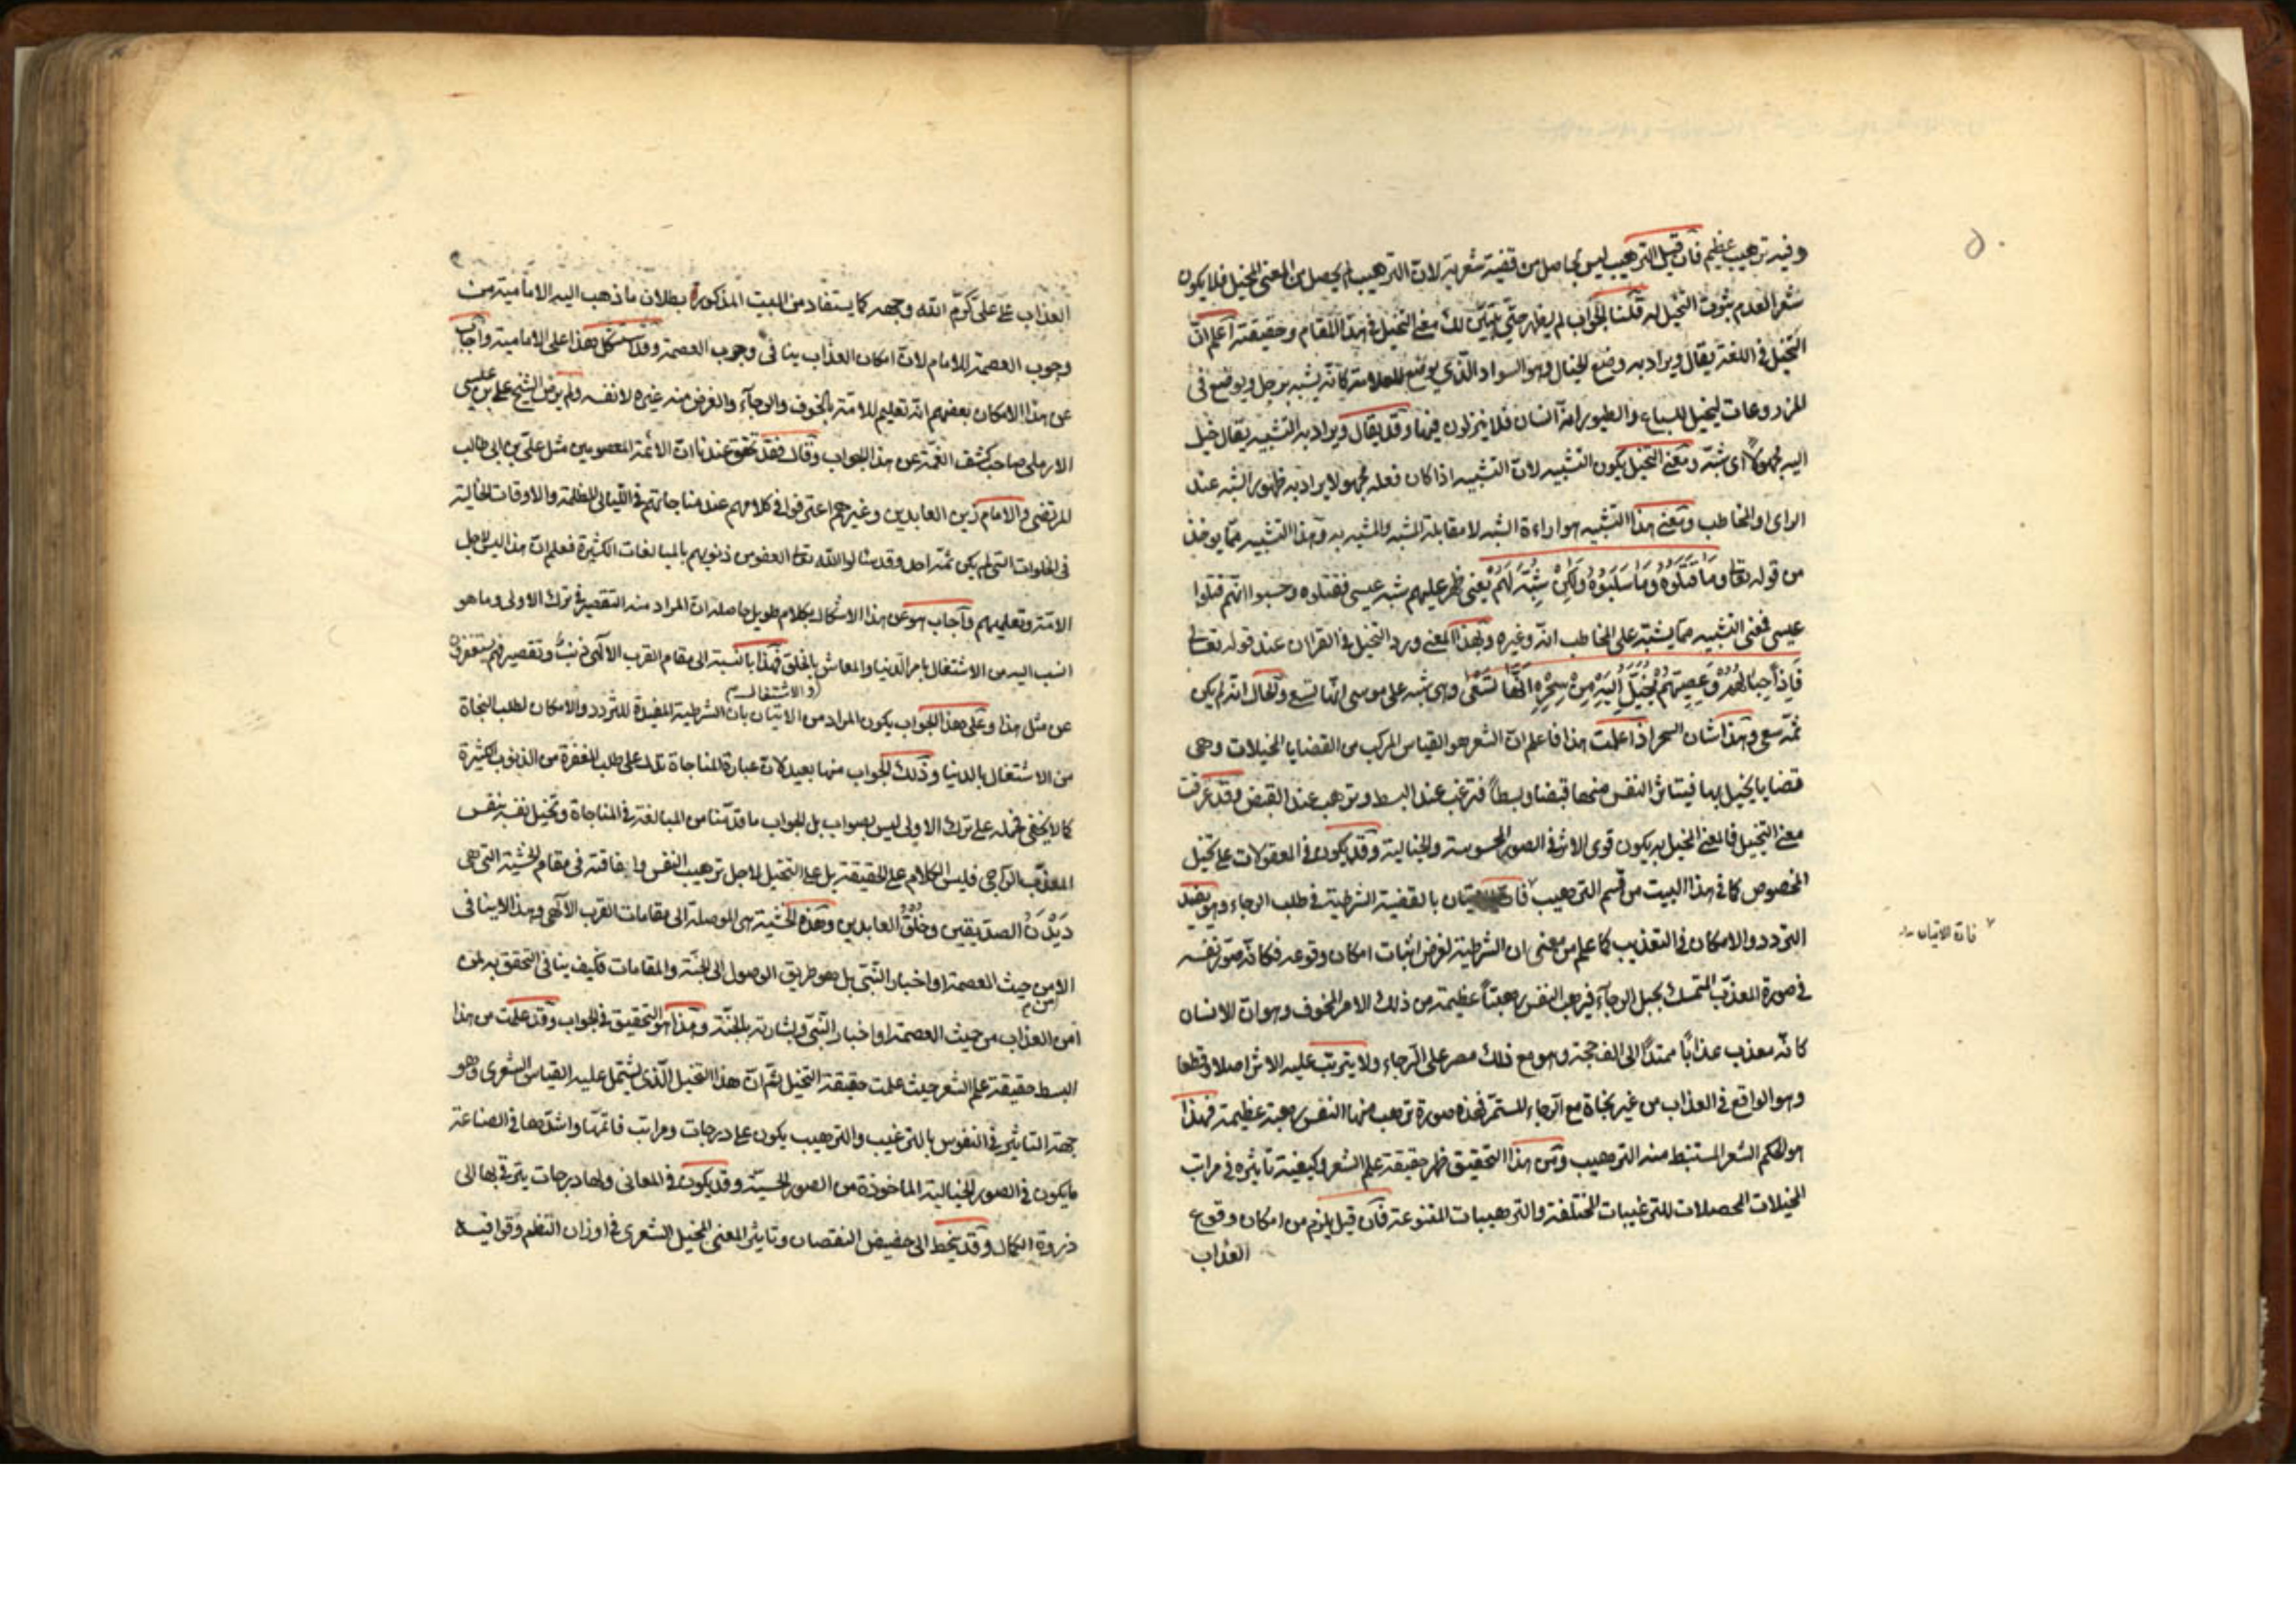 ٥
وفيه ترهيب عظيم فان قيل الترهيب ليس بحاصل من قضية شعرية لان الترهيب لم يحصل من المعنى المخيل فلا يكون
شعرا لعدم ثبوت التخيل له قلنا الجواب لم يظهر حتى يتبين لك معنى التخيل في هذا المقام وحقيقته اعلم ان
التخيل في اللغة يقال ويراد به وضع الخيال وهو السواد الذي يوضع للعلامة كانه يشبه برجل ويوضع في
المزروعات ليخيل للسباع والطيور انه انسان فلا ينزلون فيها وقد يقال ويراد به التشبيه يقال خيل
اليه مجهولا اى شبه ومعنى التخيل يكون التشبيه لان التشبيه اذا كان فعله مجهولا يراد به ظهور الشبه عند
الراى او المخاطب ومعنى هذا التشبيه هو اراءة الشبه لا مقابلة المشبه والمشبه به وهذا التشبيه مما يوخذ
من قوله تعالى وما قتلوه وما سلبوه ولكن شبه لهم يعنى ظهر عليهم شبه عيسى فقتلوه وحسبوا انهم قتلوا
عيسى فمعنى التشبيه مما يشبه على المخاطب انه وغيره وبهذا المعنى ورد التخيل في القران عند قوله تعالى
فاذا حبالهم وعصيهم يخيل اليه من سحره انها تسعى وهى شبه على موسى انها تسع والحال انه لم يكن
ثمه سعى وهذا شان السحر اذا علمت هذا فاعلم ان الشعر هو القياس المركب من القضايا المخيلات وهى
قضايا يخيل بها فيتاثر النفس منها قبضا وبسطا فترغب عند البسط وترهب عند القبض وقد عرفت
معنى التخيل فالمعنى المخيل به يكون قوى الاثر في الصور المحسوسة والخيالية وقد يكون في المعقولات على تخيل
المخصوص كما في هذا البيت من قسم الترهيب فان الاتيان بالقضية الشرطية في طلب الرجاء وهو يفيد
التردد والامكان في التعذيب كما علم من معنى ان الشرطية لغرض اثبات امكان وقوعه فكانه صور نفسه
في صورة المعذب المتمسك بحبل الرجاء فيرهب النفس رهبتا عظيمة من ذلك الامر المخوف وهو ان الانسان
كانه معذب عذابا ممتدا الى الف حجة وهو مع ذلك مصر على الرجاء ولا يترتب عليه الاثر اصلا وقطعا
وهو الواقع في العذاب من غير نجاة مع الرجاء المستمر فهذه صورة ترهب منها النفس رهبة عظيمة فهذا
هو الحكم الشعر المستنبط منه الترهيب ومن هذا التحقيق ظهر حقيقة علم الشعر وكيفية تاثيره في مراتب
المخيلات المحصلات للترغيبات المختلفة والترهيبات المتنوعة فان قيل يلزم من امكان وقوع
العذاب
فانه الاتيان
العذاب على على كرم الله وجهه كما يستفاد من البيت المذكورة بطلان ما ذهب اليه الامامية من
وجوب العصمة للامام لان امكان العذاب ينافى وجوب العصمة وقد استشكل هذا على الامامية واجاب
عن هذا الامكان بعضهم انه تعليم للامة بالخوف والرجاء والغرض منه غيره لا نفسه ولم يرض الشيخ على بن عيسى
الارملى صاحب كشف الغمة عن هذا الجواب وقال فقد تحقق عندنا ان الائمة المعصومين مثل على بن ابى طالب
المرتضى والامام زين العابدين وغيرهم اعترفوا في كلامهم عند مناجاتهم في الليالى المظلمة والاوقات الخالية
في الخلوات التى لم يكن ثمه احد وقد سئالوا الله تعالى العفو من ذنوبهم بالمبالغات الكثيرة فعلم ان هذا ليس لاجل
الامة وتعليمهم واجاب هو عن هذا الاشكال بكلام طويل حاصله ان المراد منه التقصير في ترك الاولى وما هو
انسب اليه من الاشتغال بامر الدنيا والمعاش بالخلق فهذا بالنسبة الى مقام القرب الالهى ذنب وتقصير فهم يستغفرون
والاشتغال
عن مثل هذا وعلى هذا الجواب يكون المراد من الاتيان بان الشرطية المفيدة للتردد والامكان لطلب النجاة
من الاشتغال بالدنيا وذلك الجواب منها بعيد لان عبارة المناجاة تدل على طلب المغفرة من الذنوب الكثيرة
كما لا يخفى فحمله على ترك الاولى ليس بصواب بل الجواب ما قدمنا من المبالغة في المناجاة وتخيل نفسه بنفس
المعذب الراجى فليس الكلام على الحقيقة بل على التخيل لاجل ترهيب النفس واخافته في مقام الخشية التى هى
ديدن الصديقين وخلق العابدين وهذه الخشية هى الموصلة الى مقامات القرب الالهى وهذا لا ينافى
الامن حيث العصمة او اخبار النبى بل هو طريق الوصول الى الجنة والمقامات فكيف ينافى التحقق به لمن
امن من
العذاب من حيث العصمة او اخبار النبى وبشارته بالجنة وهذا هو التحقيق في الجواب وقد علمت من هذا
البسط حقيقة علم الشعر حيث علمت حقيقة التخيل ثم ان هذا التخيل الذى يشتمل عليه القياس الشعرى وهو
جهة التاثير في النفوس بالترغيب والترهيب يكون على درجات ومراتب فاتمها واشدها في الصناعة
ما يكون في الصور الخيالية الماخوذة من الصور الحسية وقد يكون في المعانى ولها درجات يترقى بها الى
ذروة الكمال وقد ينحط الى حضيض النقصان وتاثير المعنى المخيل الشعرى في اوزان النظم وقوافيه